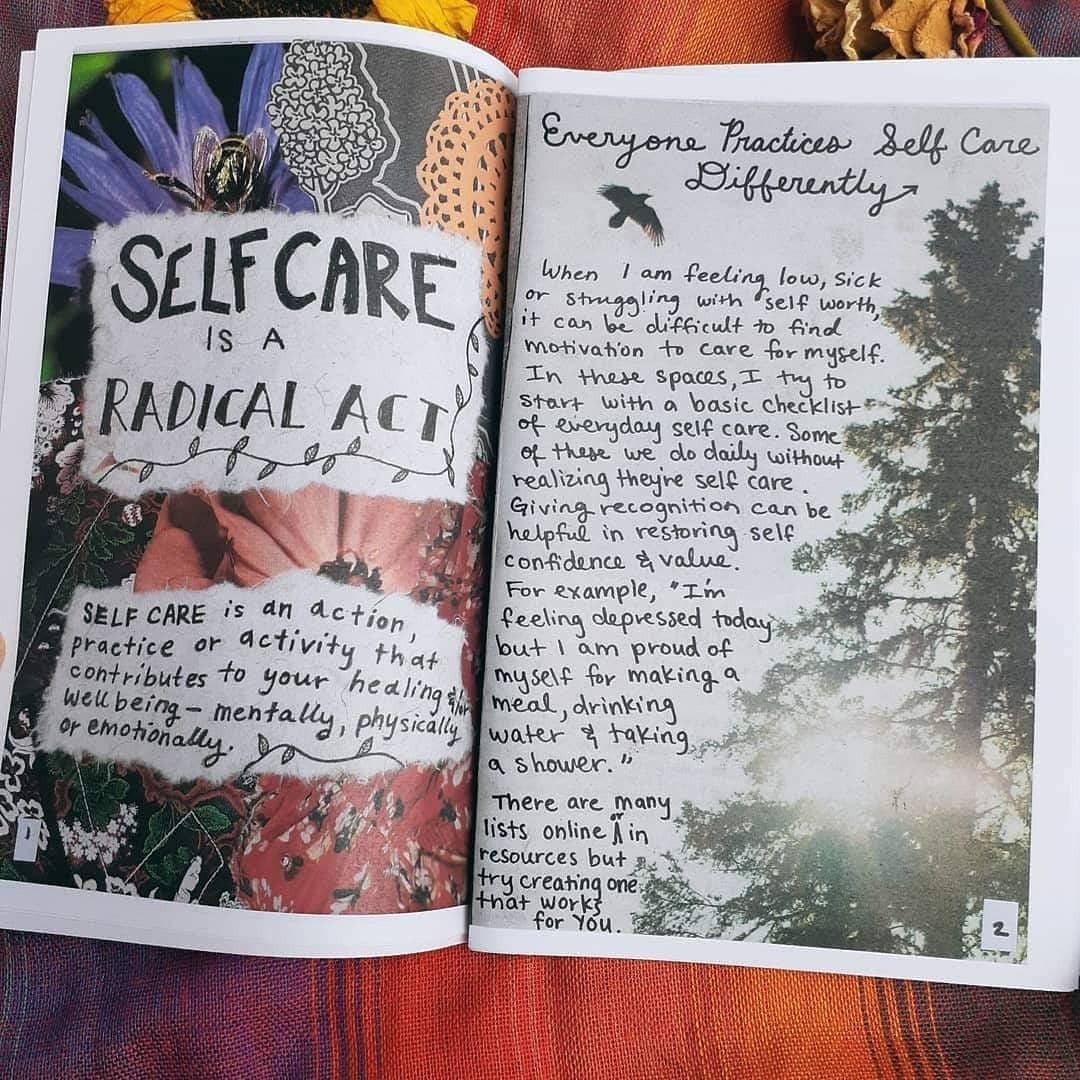 SELF CARE
IS A
RADICAL ACT
SELF CARE is an action,
practice or activity that
contributes to your healing &/or
wellbeing – mentally, physically
or emotionally.
1
Everyone Practices Self Care
Differently
When I am feeling low, sick
or struggling with self worth,
it can be difficult to find
motivation to care for myself.
In these spaces, I try to
start with a basic checklist
of everyday self care. Some
of these we do daily without
realizing they're self care.
Giving recognition can be
helpful in restoring self
confidence & value.
For example, "I'm
feeling depressed today
but I am proud of
myself for making a
meal, drinking
water & taking
a shower."
There are many
lists online or in
resources but
try creating one
that works
for You.
2